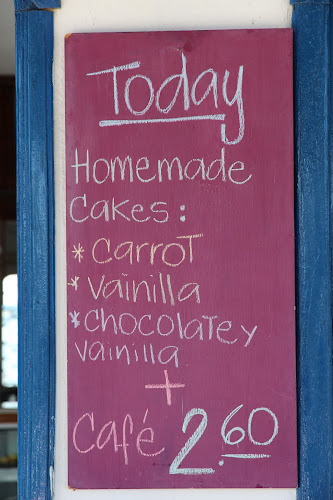 Today
Homemade
Cakes:
* Carrot
* Vainilla
* Chocolate y
Vainilla
+
Café 2.60